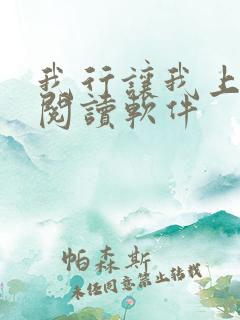 我行讓我上
閱讀軟件
帕森斯
未经同意禁止转载